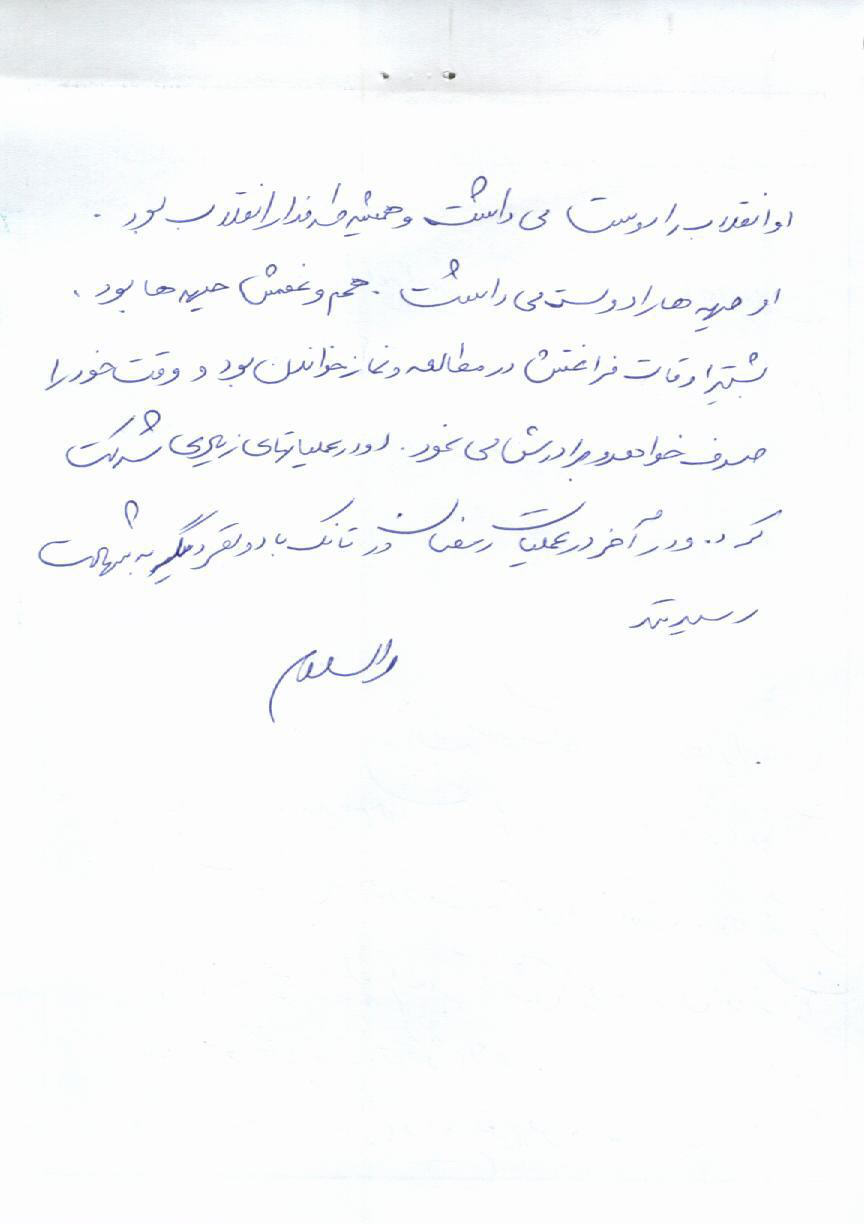 او انقلاب را دوست می داشت و همیشه طرفدار انقلاب بود .
او جبهه ها را دوست می داشت . هم و غمش جبهه ها بود .
بیشتر اوقات فراغتش در مطالعه و نماز خواندن بود و وقت خود را
صرف خواهر و برادرش می نمود . او در عملیاتهای زیادی شرکت
کرد . و در آخر در عملیات رمضان در تانک با دو نفر دیگر به شهادت
رسیدند
والسلام